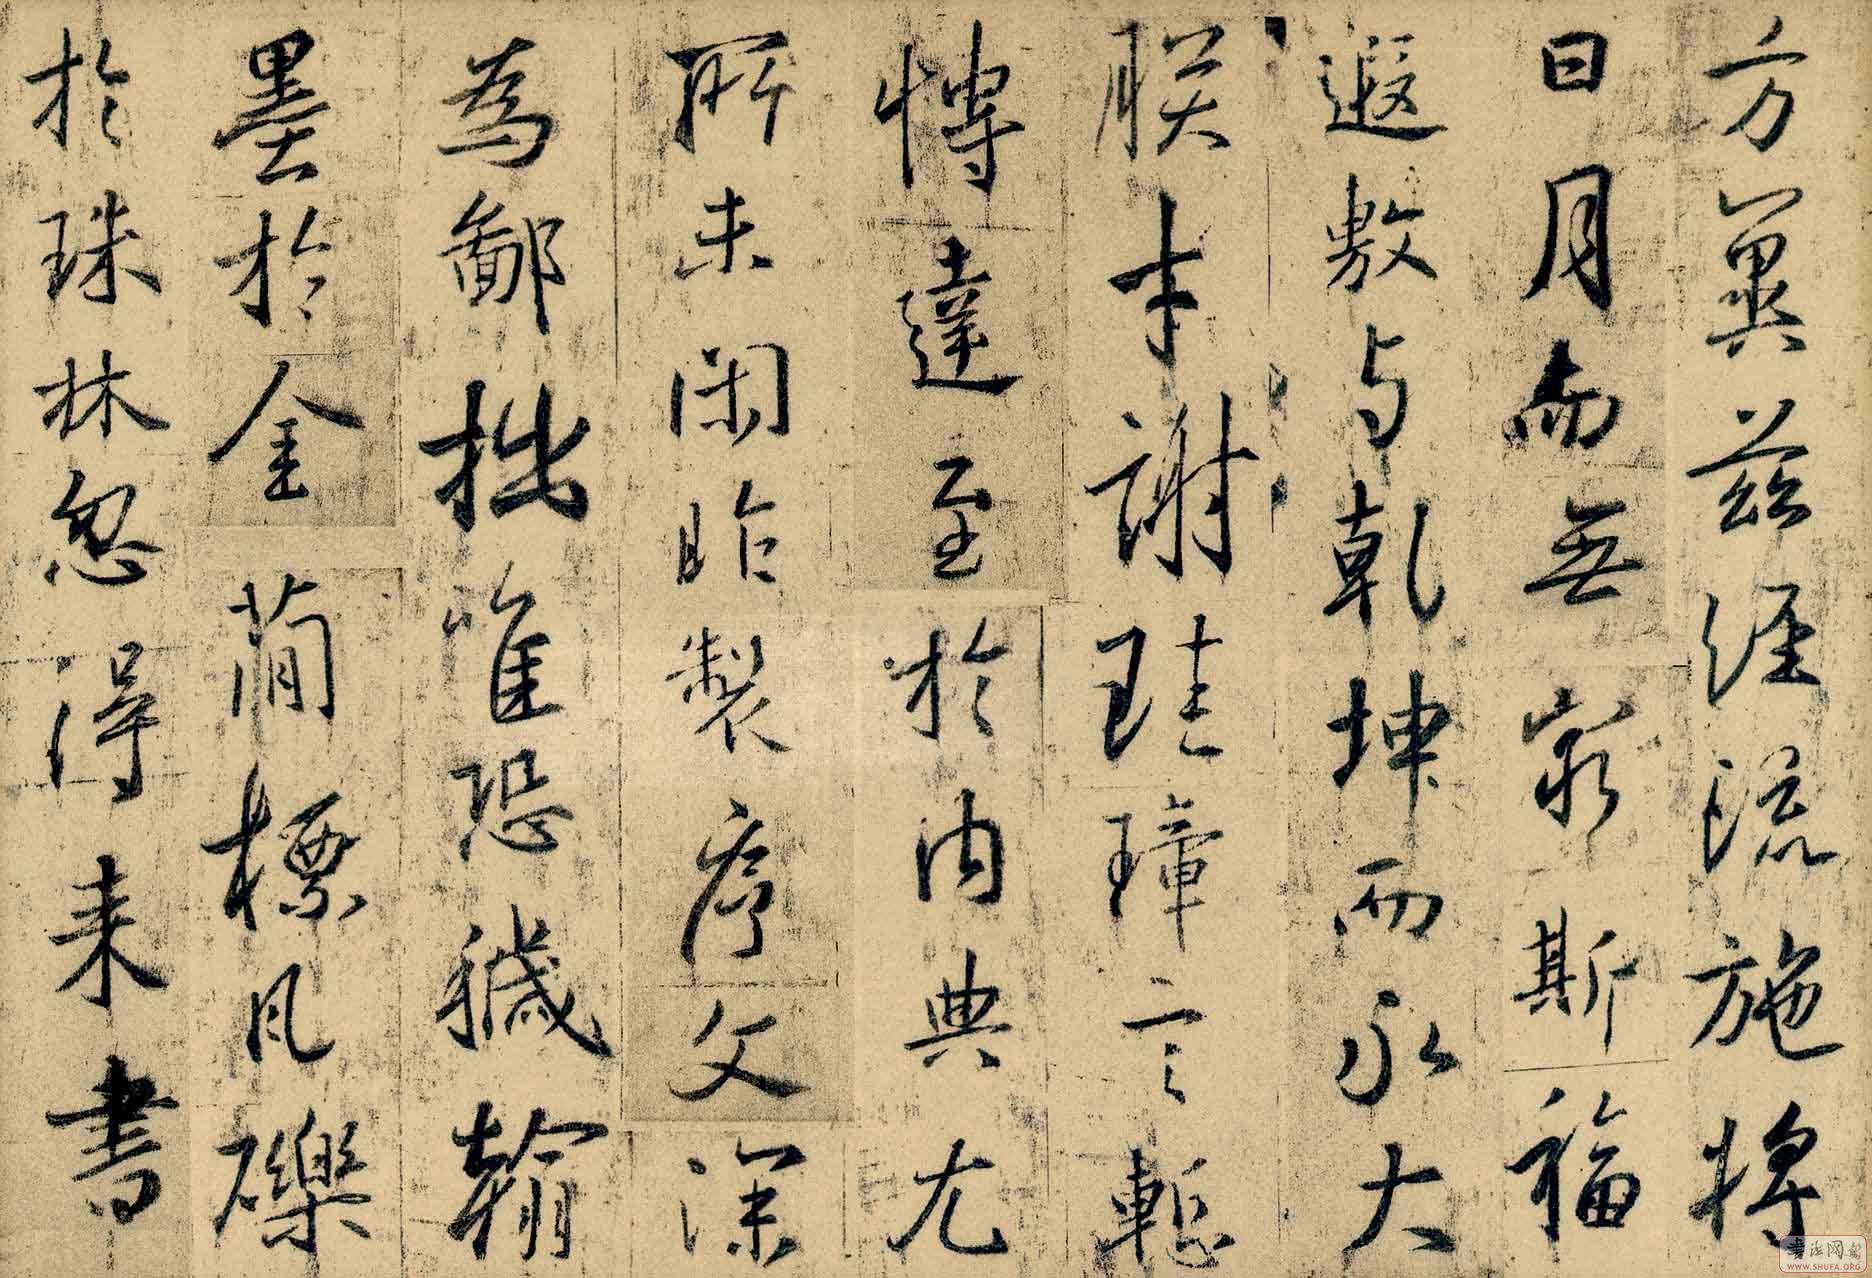 方冀茲經流施將
日月而無窮斯福
遐敷与乾坤而永大
朕才謝珪璋言慙
愽達至於内典尤
所未閑昨製序文深
為鄙拙唯恐穢翰
墨於金簡標瓦礫
於珠林忽得来書
书法网
WWW.SHUFA.ORG